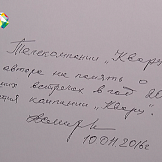 Телекомпании „Кварц"
автора на память о
ших встречах в год
ция компании „Кварц".
10.011.2016г